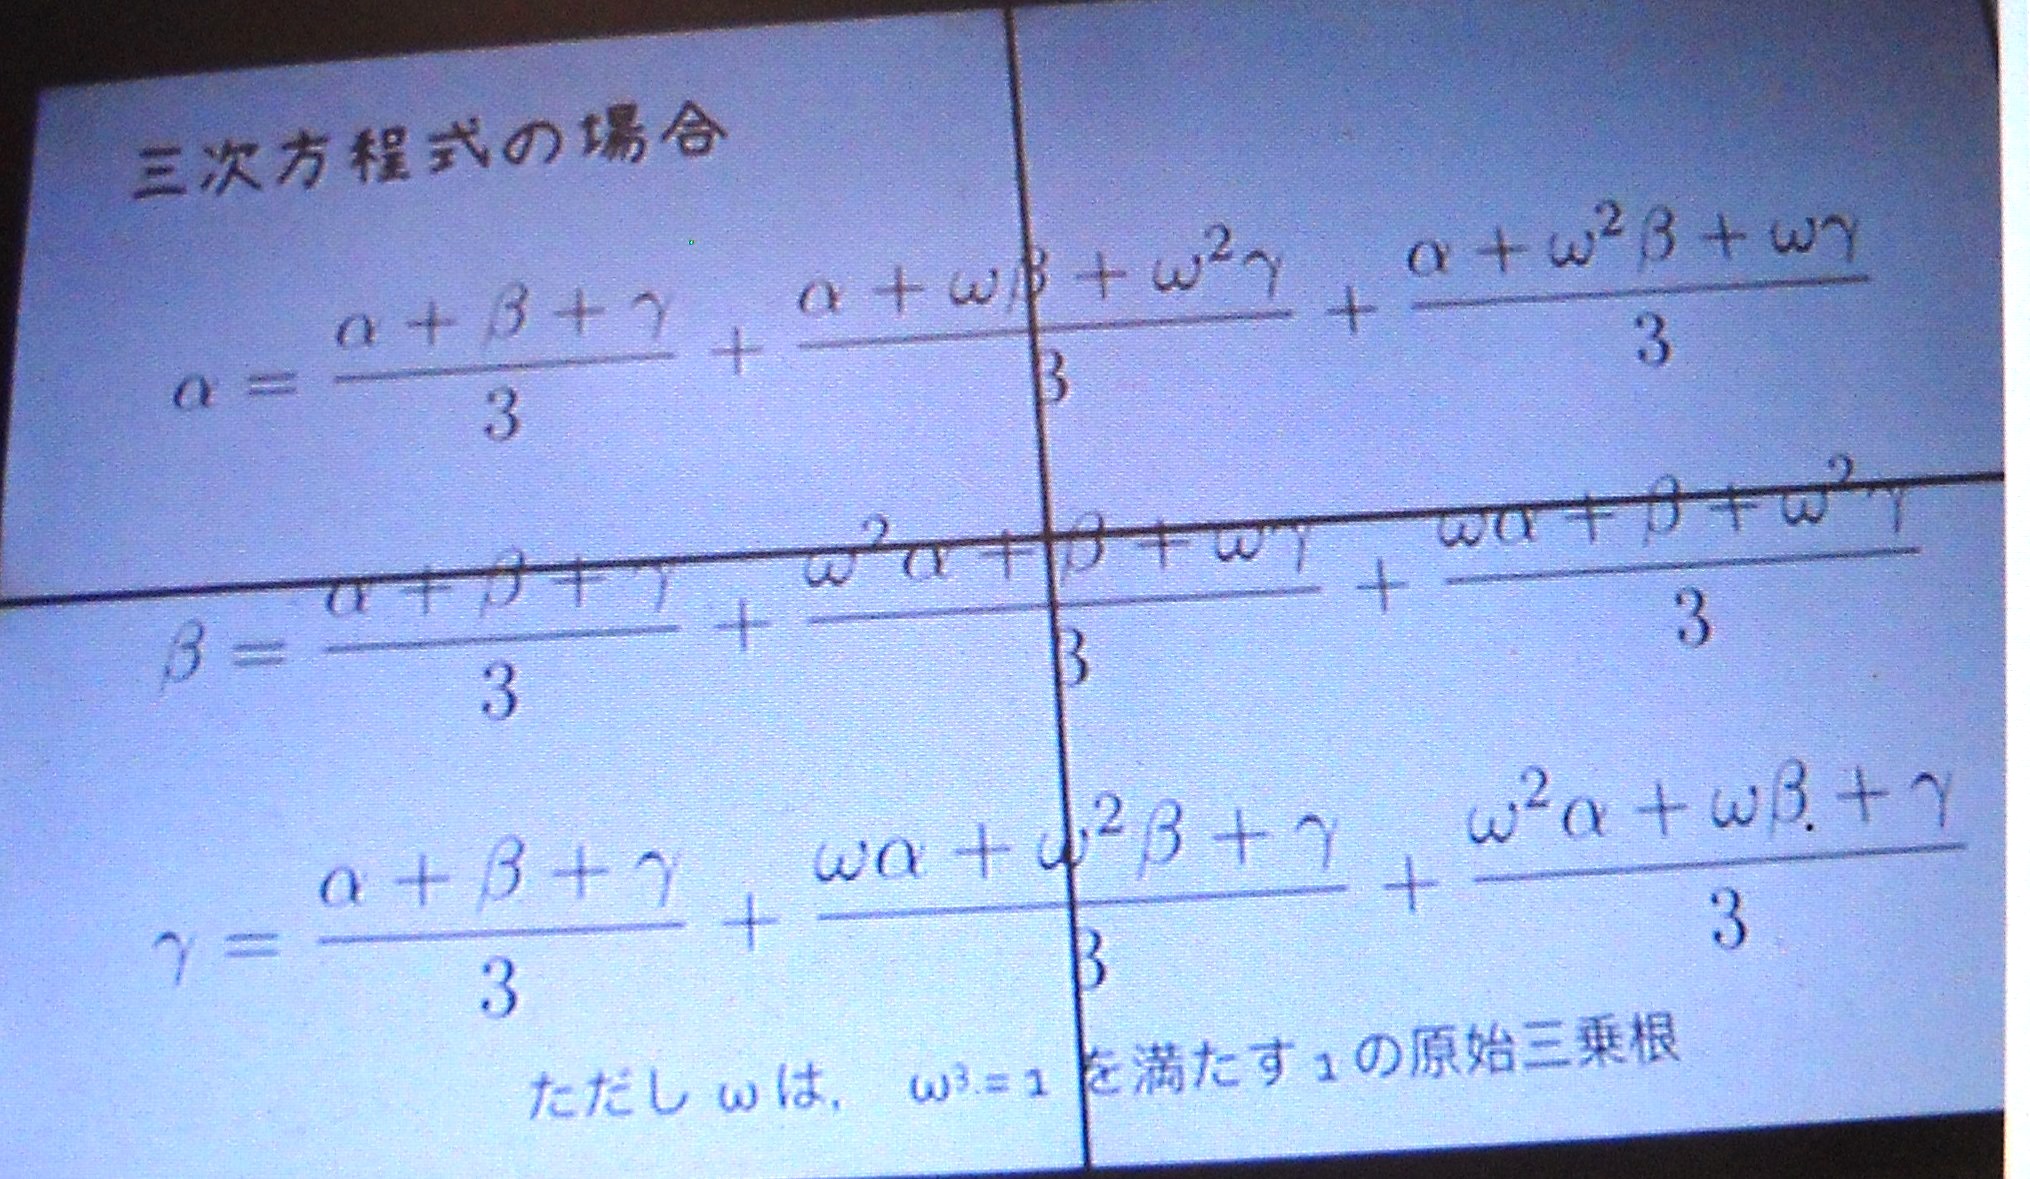 三次方程式の場合
α = (α + β + γ)/3 + (α + ωβ + ω²γ)/3 + (α + ω²β + ωγ)/3
β = (α + β + γ)/3 + (ω²α + β + ωγ)/3 + (ωα + β + ω²γ)/3
γ = (α + β + γ)/3 + (ωα + ω²β + γ)/3 + (ω²α + ωβ + γ)/3
ただし ω は, ω³ = 1 を満たす 1 の原始三乗根